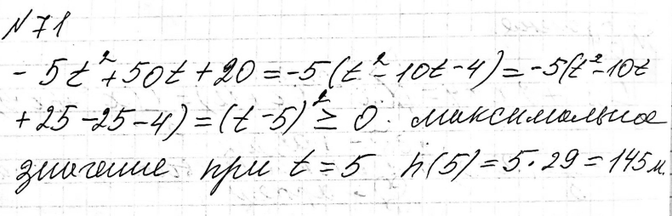 №71
- 5t² + 50t + 20 = -5(t² - 10t - 4) = -5(t² - 10t
+ 25 - 25 - 4) = (t - 5)² ≥ 0. максимальное
значение при t = 5 h(5) = 5 · 29 = 145 м.